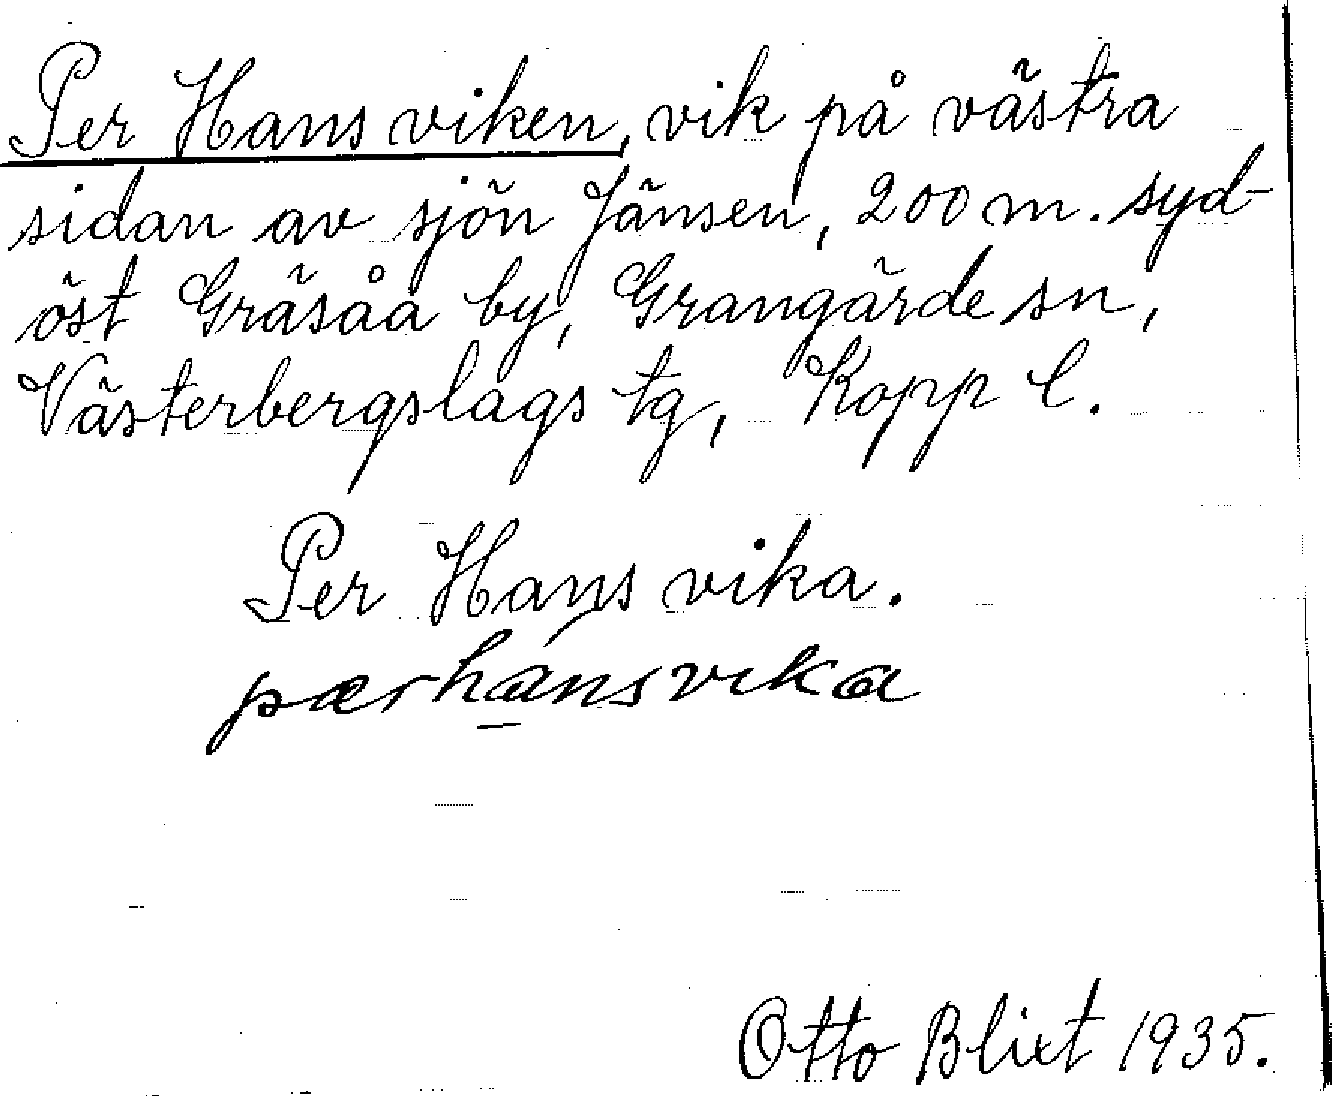 Per Hans viken, vik på västra
sidan av sjön Jänsen, 200 m. syd-
öst Gräsåa by, Grangärde sn,
Västerbergslags tg, Kopp l.
Per Hans vika.
pærhánsvika
Otto Blixt 1935.